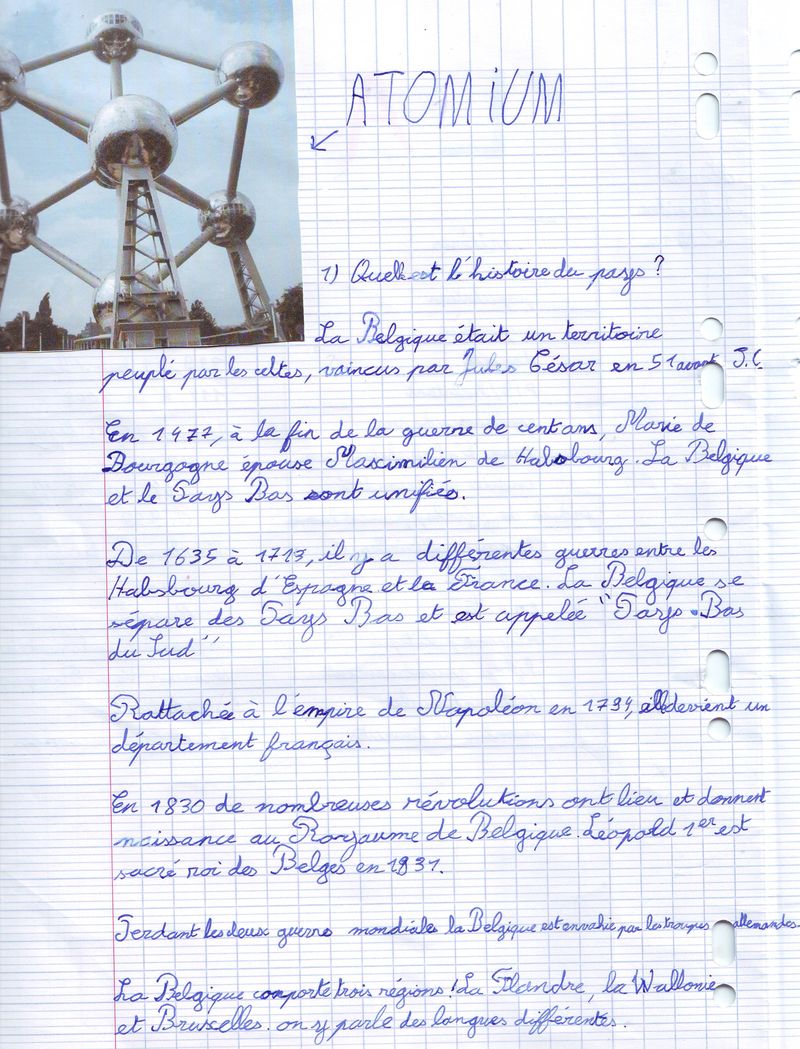 ATOMiUM
1) Quelle est l'histoire du pays ?
La Belgique était un territoire
peuplé par les celtes, vaincus par Jules César en 51 avant J.C
En 1477, à la fin de la guerre de cent ans, Marie de
Bourgogne épouse Maximilien de Habsbourg. La Belgique
et le Pays Bas sont unifiés.
De 1635 à 1713, il y a différentes guerres entre les
Habsbourg d'Espagne et la France. La Belgique se
sépare des Pays Bas et est appelée "Pays-Bas
du Sud"
Rattachée à l'émpire de Napoléon en 1794, elle devient un
département français.
En 1830 de nombreuses révolutions ont lieu et donnent
naissance au Royaume de Belgique. Léopold 1er est
sacré roi des Belges en 1831.
Pendant les deux guerres mondiales la Belgique est envahie par les troupes allemandes.
La Belgique comporte trois régions ! La Flandre, la Wallonie
et Bruxelles. on y parle des langues différentes.